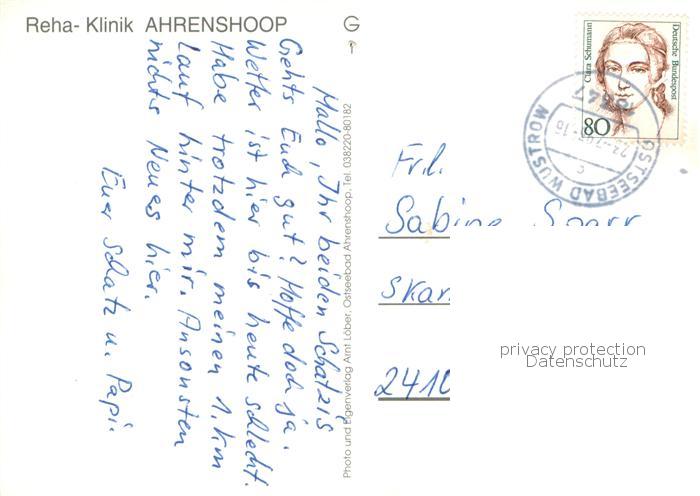 Reha- Klinik AHRENSHOOP
G
Hallo, Ihr beiden Schatzis
Gehts Euch gut? Hoffe doch ja.
Wetter ist hier bis heute schlecht.
Habe trotzdem meinen 1. km
Lauf hinter mir. Ansonsten
nichts Neues hier.
Euer Schatz u. Papi.
Photo und Eigenverlag Arnt Löber, Ostseebad Ahrenshoop, Tel. 038220-80182
Clara Schumann
Deutsche Bundespost
80
OSTSEEBAD WUSTROW
c
Frl.
Sabine
Skar
2410
privacy protection
Datenschutz